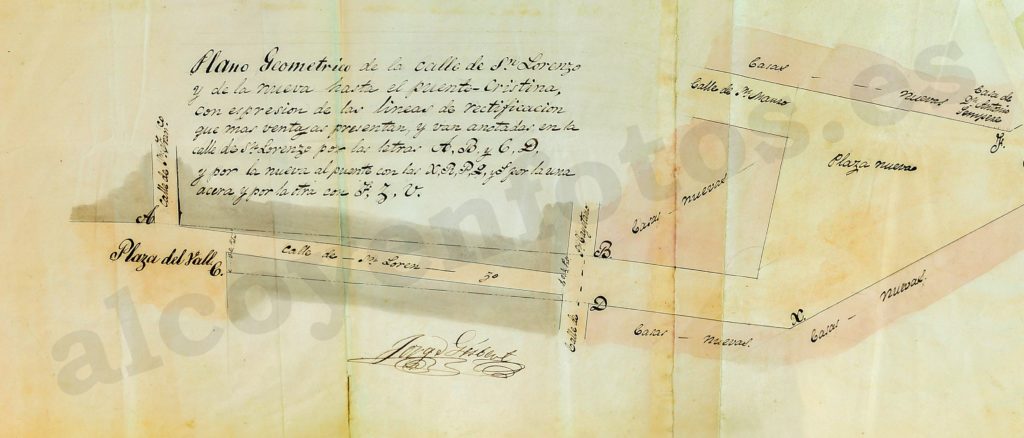 Plano Geometrico de la calle de Sn. Lorenzo
y de la nueva hasta el puente-Cristina,
con espresion de las lineas de rectificacion
que mas ventajas presentan, y van anotadas en la
calle de Sn. Lorenzo por las letras A, B, y C, D.
y por la nueva al puente con las X, R, P, L, y S por la una
acera y por la otra con F, Z, V.
Casas — Nuevas
Calle de Sn. Mauro
Casa de
Dn. Antonio
Sempere
F.
Plaza nueva
Casas — nuevas
Calle de Sn.
A
Plaza del Vall
C.
Calle de — Sn. Loren — zo
B
D
Calle de
X.
Casas — nuevas.
Casas — Nuevas.
Jorge Gisbert
alcoyenfotos.es